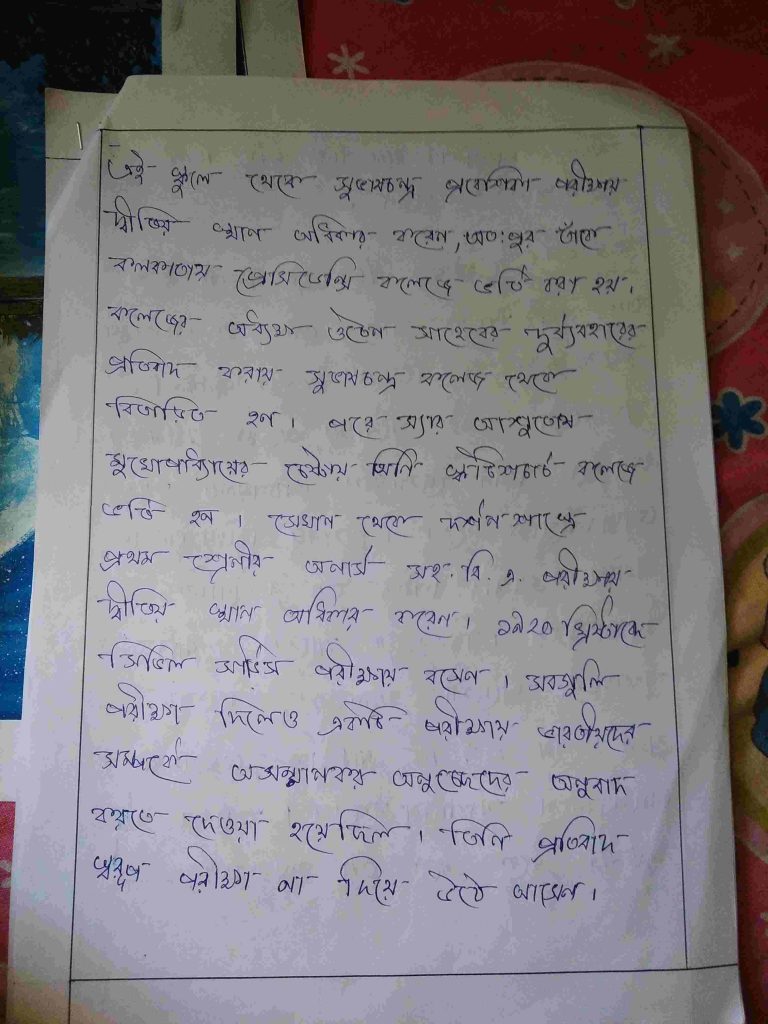 এই স্কুলে থেকে সুভাষচন্দ্র প্রবেশিকা পরীক্ষায়
দ্বীতিয় স্থান অধিকার করেন, অত:পুর তাঁকে
কলকাতায় প্রেসিডেন্সি কলেজে ভর্তি করা হয়।
কলেজের অধ্যক্ষ ওটেন সাহেবের দুর্ব্যবহারের
প্রতিবাদ করায় সুভাষচন্দ্র কলেজ থেকে
বিতাড়িত হন। পরে স্যার আশুতোষ
মুখোপাধ্যায়ের চেষ্টায় তিনি স্কটিশচার্চ কলেজে
ভর্তি হন। সেখান থেকে দর্শন শাস্ত্রে
প্রথম শ্রেনীর অনার্স সহ. বি. এ. পরীক্ষায়
দ্বীতিয় স্থান অধিকার করেন। ১৯২০ খ্রিষ্টাব্দে
সিভিল সার্ভিস পরীক্ষায় বসেন। সবগুলি
পরীক্ষা দিলেও একটি পরীক্ষায় ভারতীয়দের
সম্পর্কে অসম্মানকর অনুচ্ছেদের অনুবাদ
করতে দেওয়া হয়েছিল। তিনি প্রতিবাদ
স্বরূপ পরীক্ষা না দিয়ে উঠে আসেন।